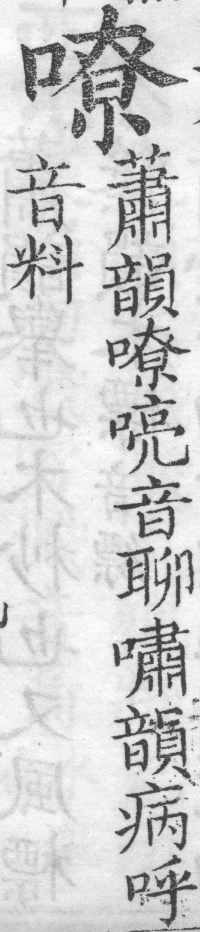 嘹
蕭韻嘹喨音聊嘯韻病呼
音料